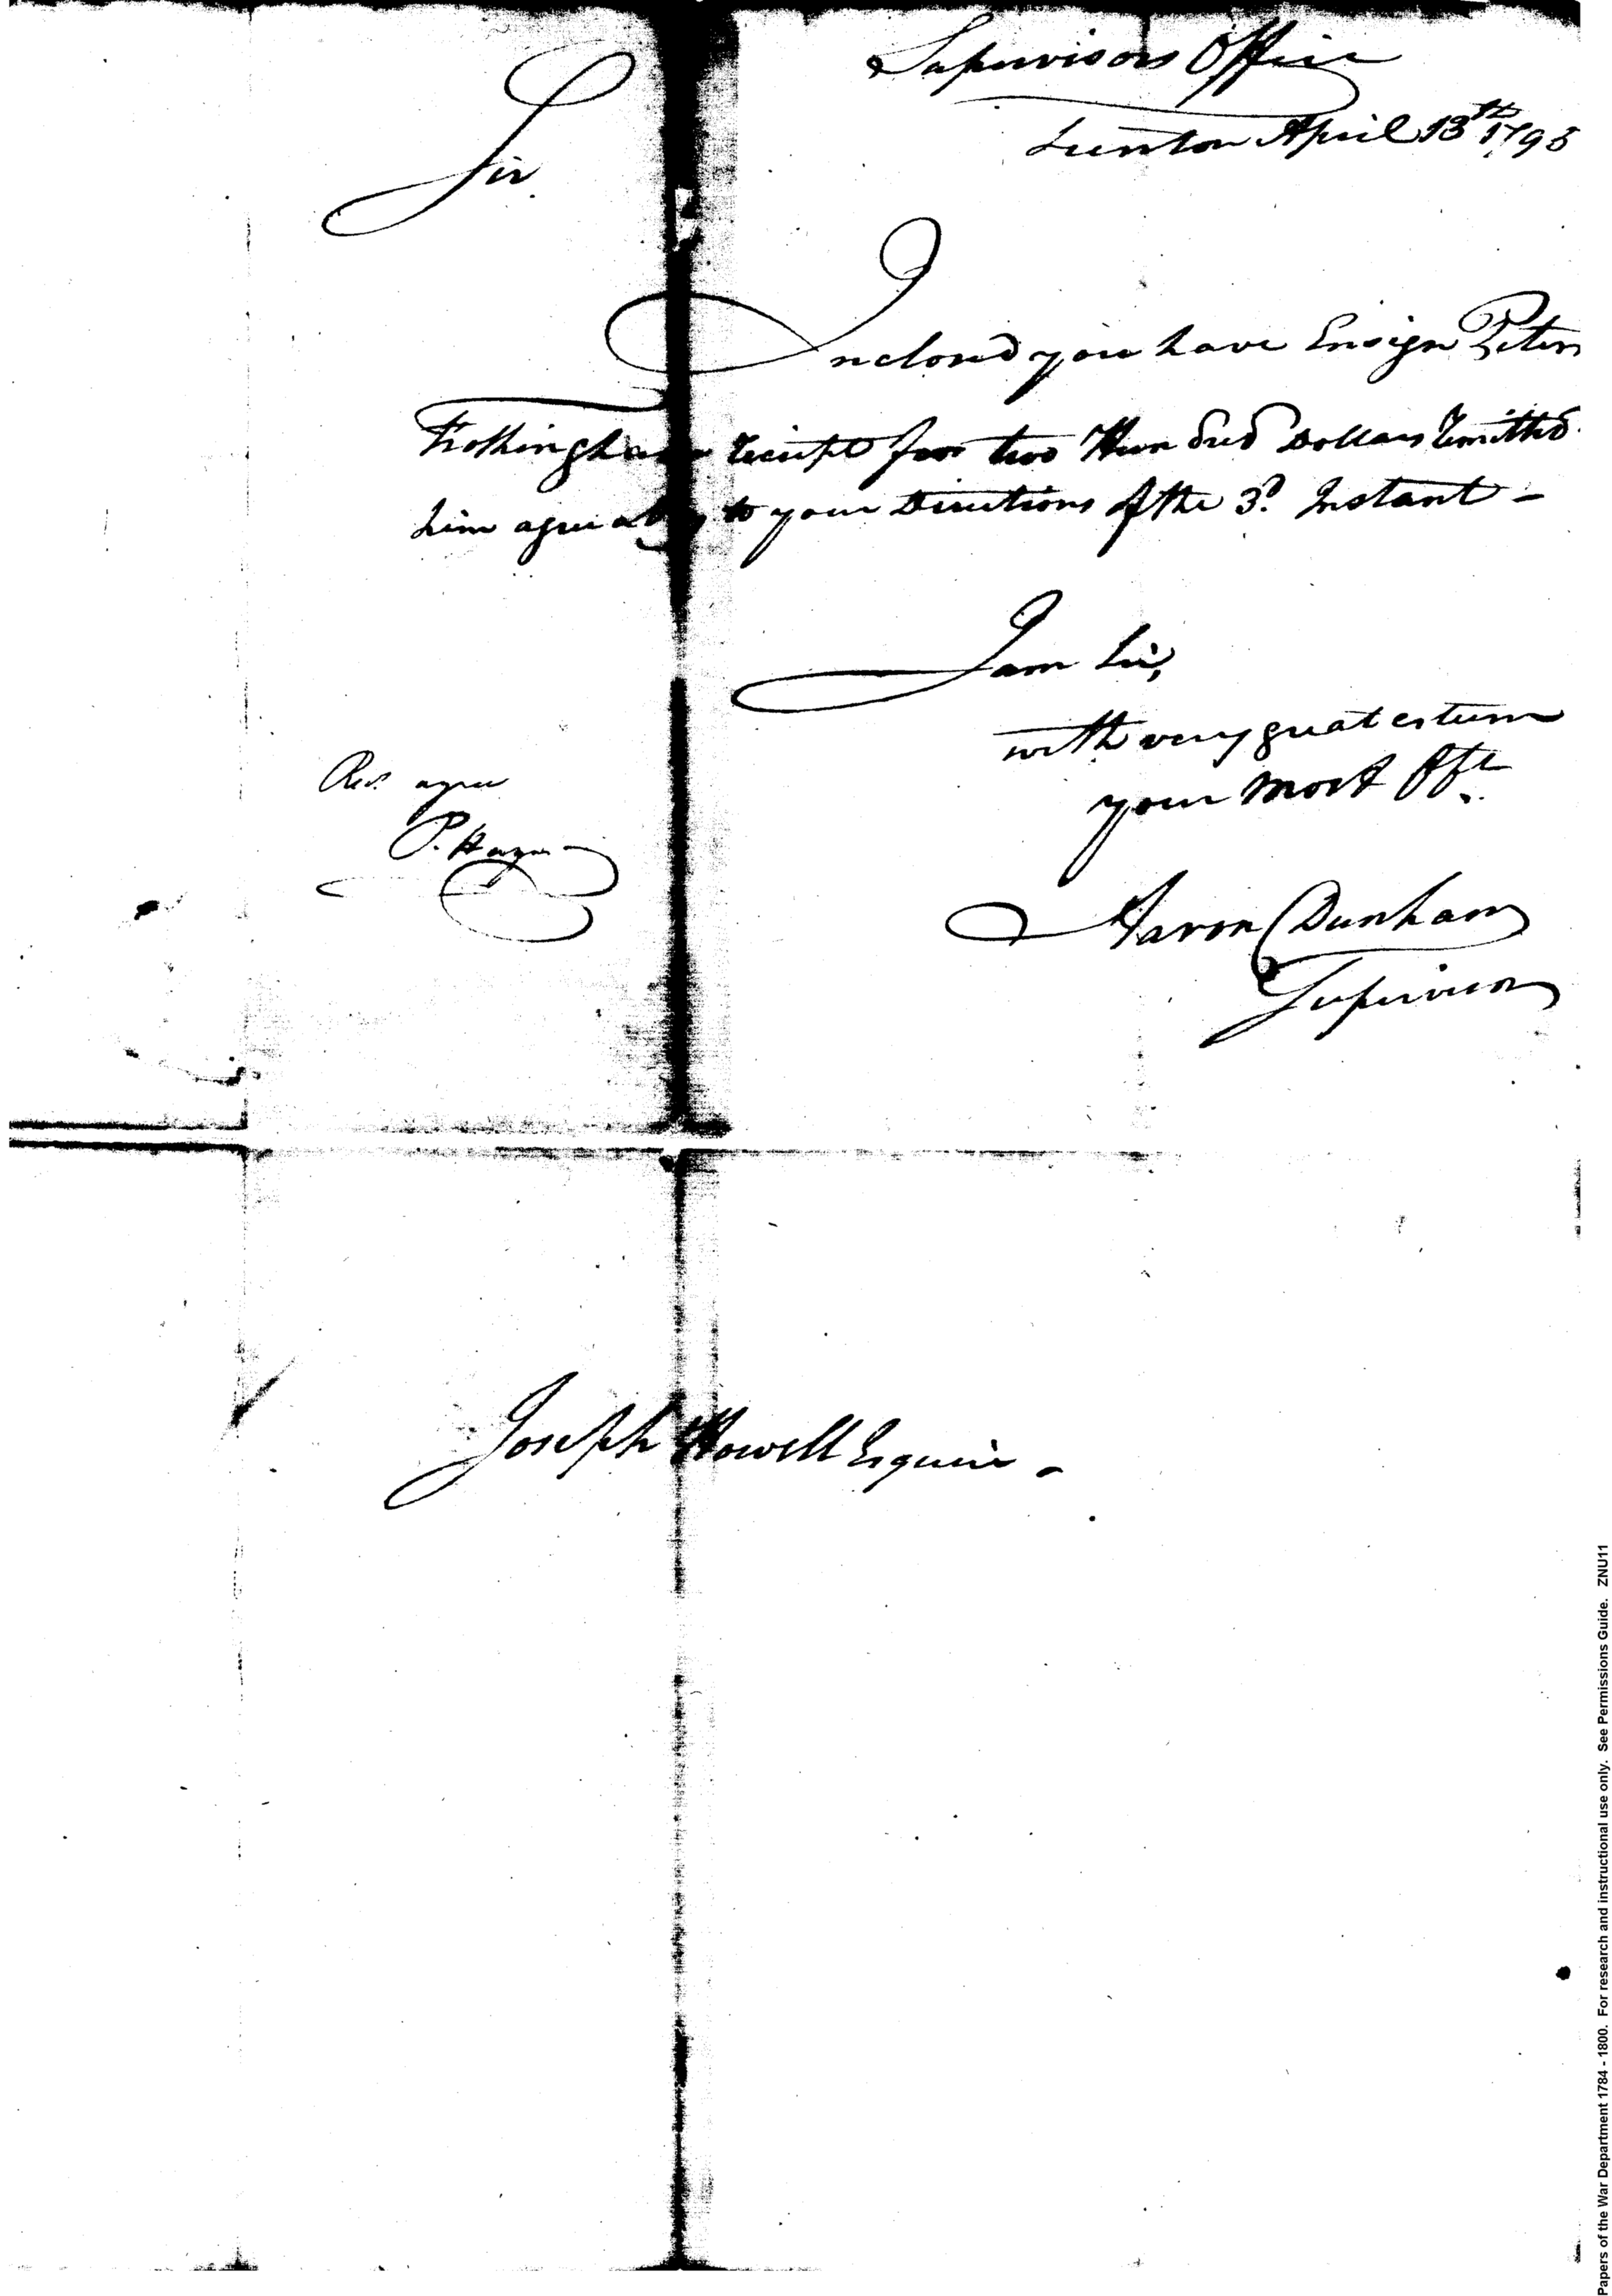 Supervisors Office
Trenton April 13th 1793
Sir
Inclosed you have Ensign Peter
Frothingham Reciept for two Hundred Dollars Remitted
him agreeably to your Directions of the 3d. Instant -
I am Sir,
with very great esteem
your most Obt.
Aaron Dunham
Supervisor
agree
P. Hagn
Joseph Howell Esquire -
Papers of the War Department 1784 - 1800. For research and instructional use only. See Permissions Guide. ZNU11